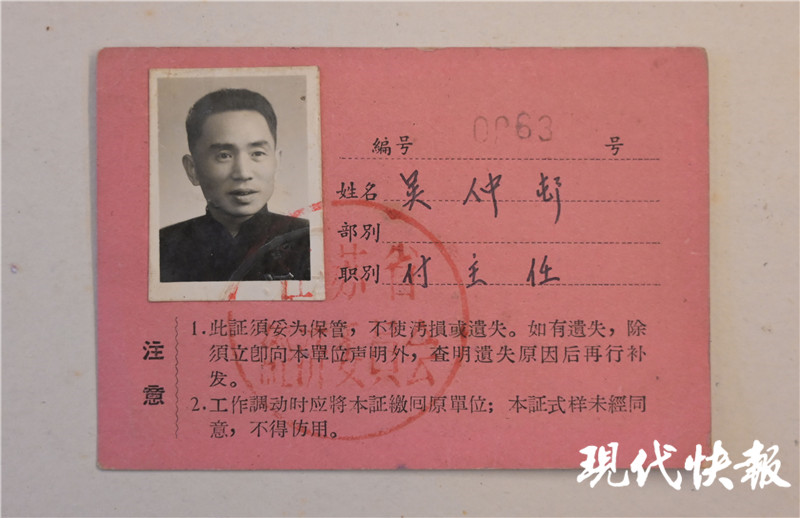 編号 0063 号
姓名 吴仲邨
部别
职别 付主任
江苏省
經济委員会
注意
1.此証須妥为保管，不使污損或遺失。如有遺失，除
須立卽向本單位声明外，查明遺失原因后再行补
发。
2.工作調动时应將本証繳回原單位；本証式样未經同
意，不得仿用。
現代快報